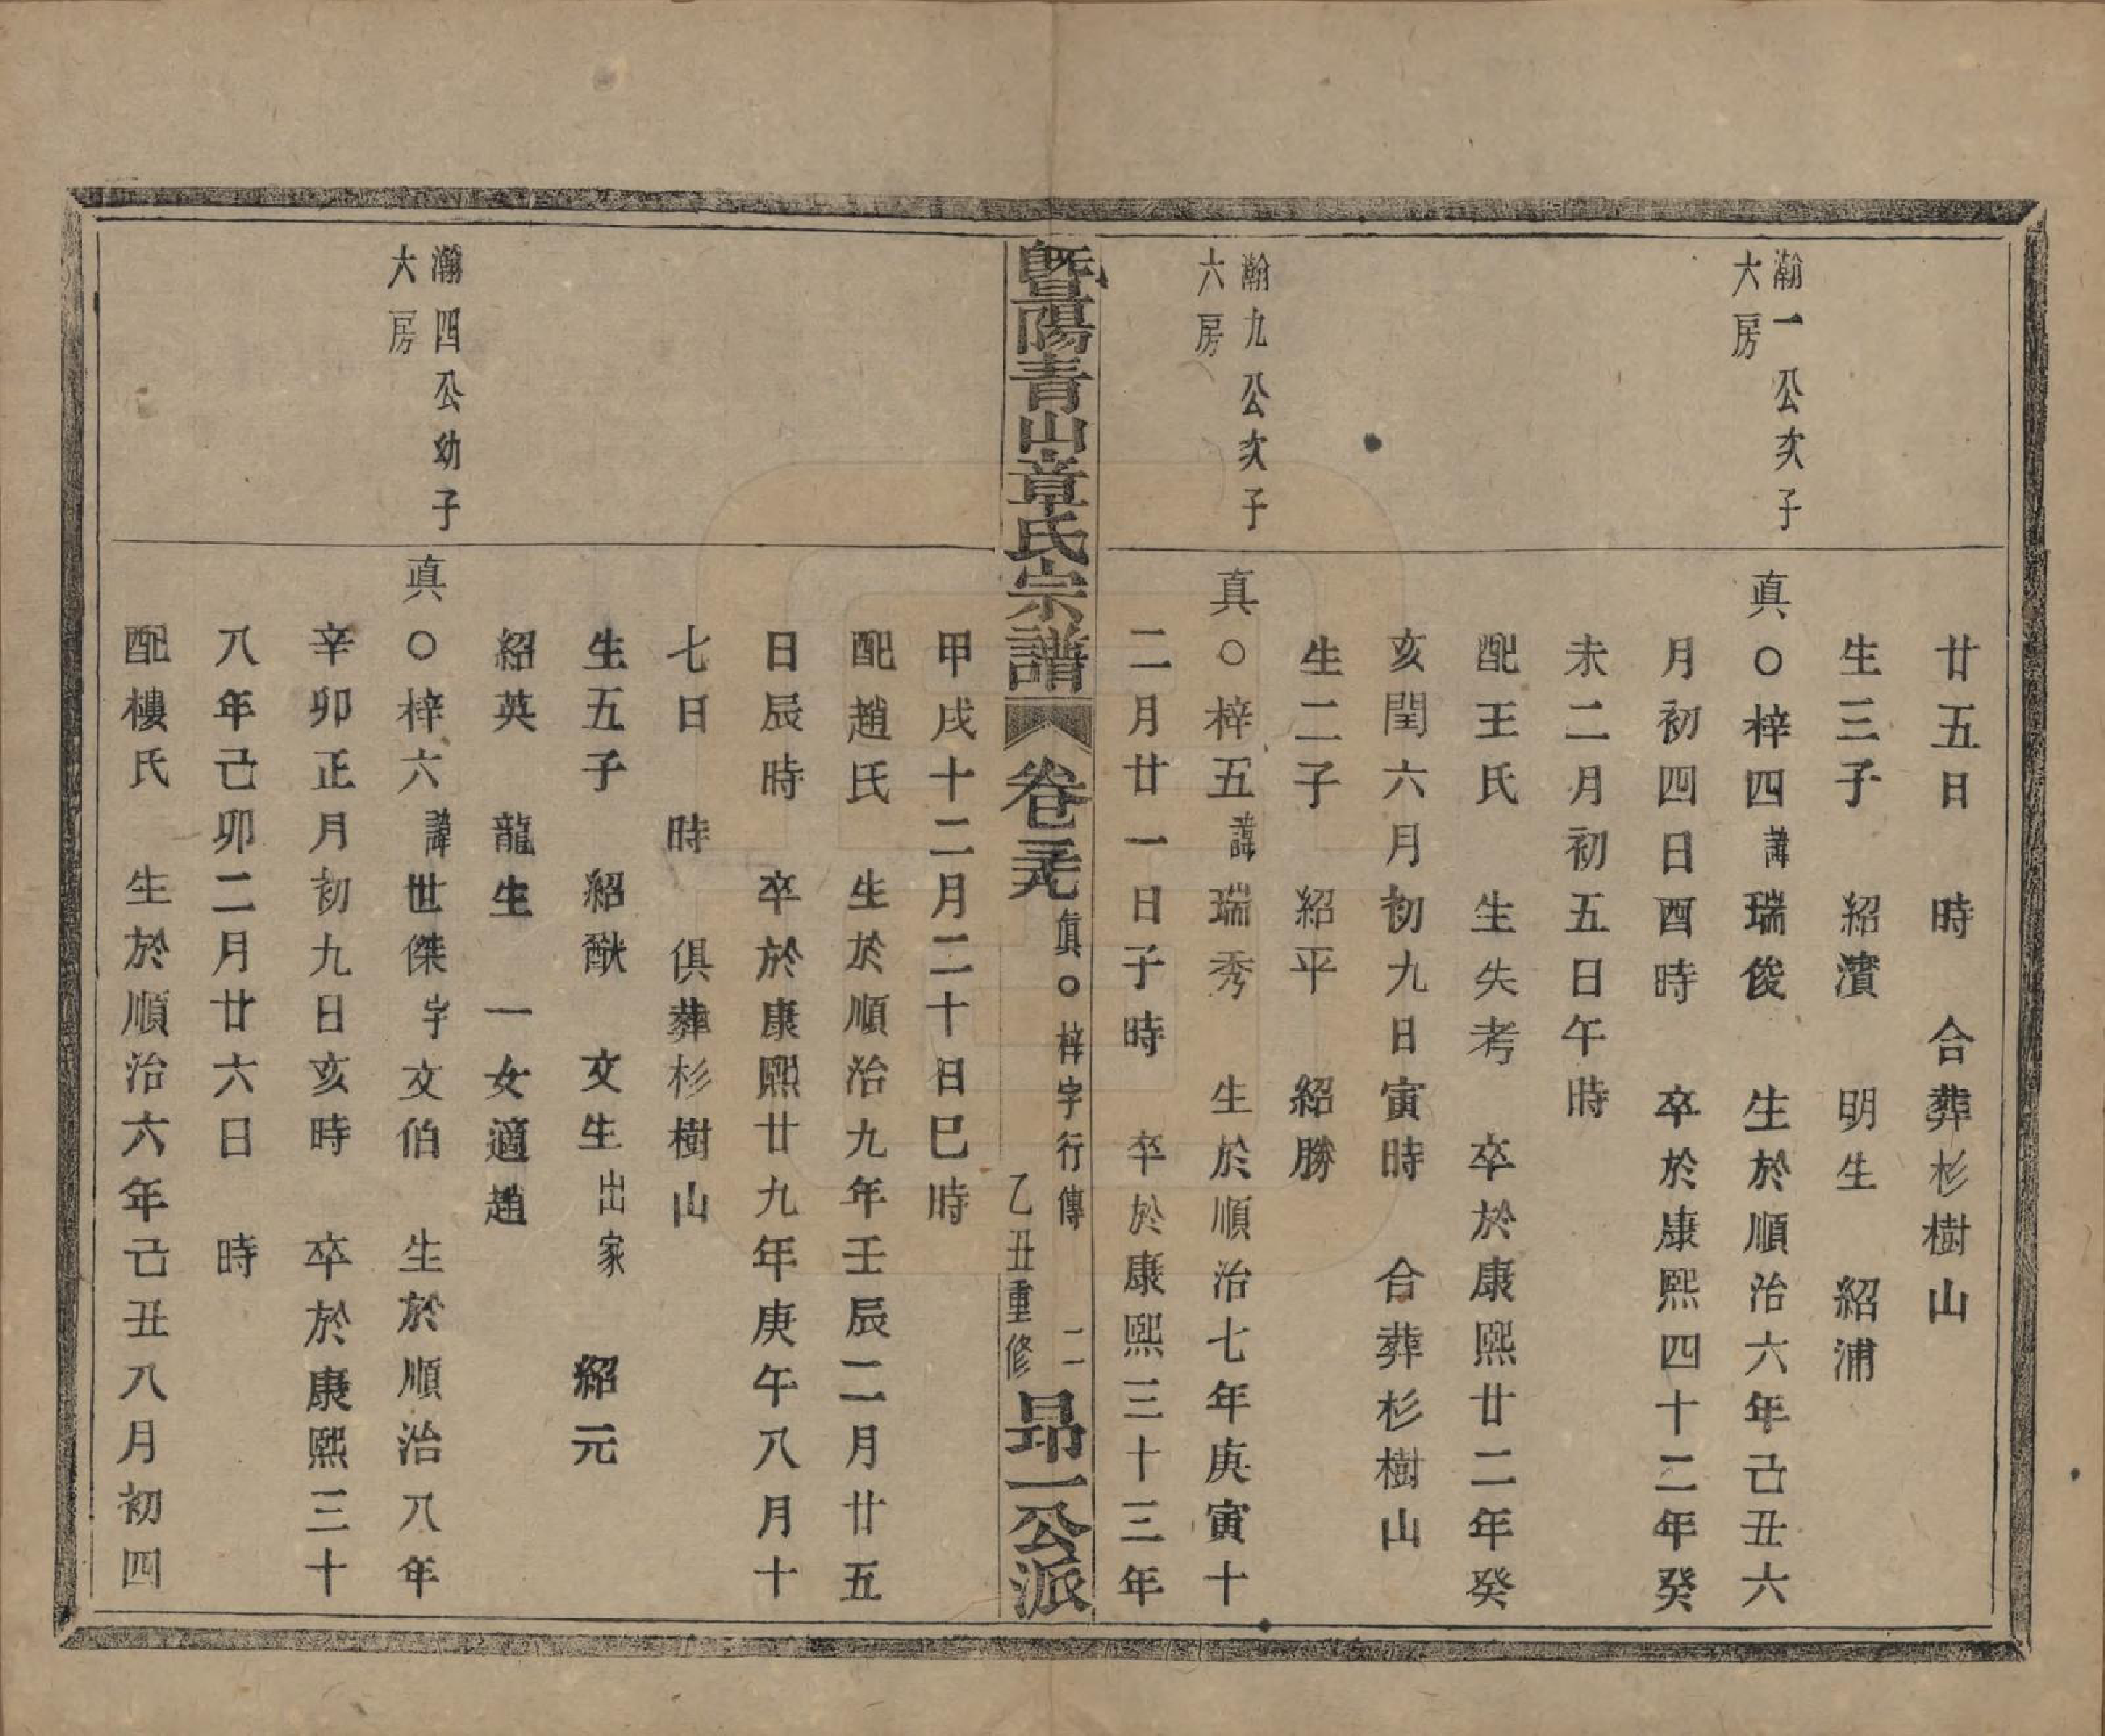 廿五日　時　合葬杉樹山
生三子　紹濱　明生　紹浦
瀚一公次子
大房
真○梓四諱瑞俊　生於順治六年己丑六
月初四日酉時　卒於康熙四十二年癸
未二月初五日午時
配王氏　生失考　卒於康熙廿二年癸
亥閏六月初九日寅時　合葬杉樹山
生二子　紹平　紹勝
瀚九公次子
六房
真○梓五諱瑞秀　生於順治七年庚寅十
二月廿一日子時　卒於康熙三十三年
暨陽青山章氏宗譜　卷三九　真○梓字行傳　二　乙丑重修　昂一公派
甲戌十二月二十日巳時
配趙氏　生於順治九年壬辰二月廿五
日辰時　卒於康熙廿九年庚午八月十
七日　時　俱葬杉樹山
生五子　紹猷　文生出家　紹元
紹英　龍生　一女適趙
瀚四公幼子
大房
真○梓六諱世傑字文伯　生於順治八年
辛卯正月初九日亥時　卒於康熙三十
八年己卯二月廿六日　時
配樓氏　生於順治六年己丑八月初四